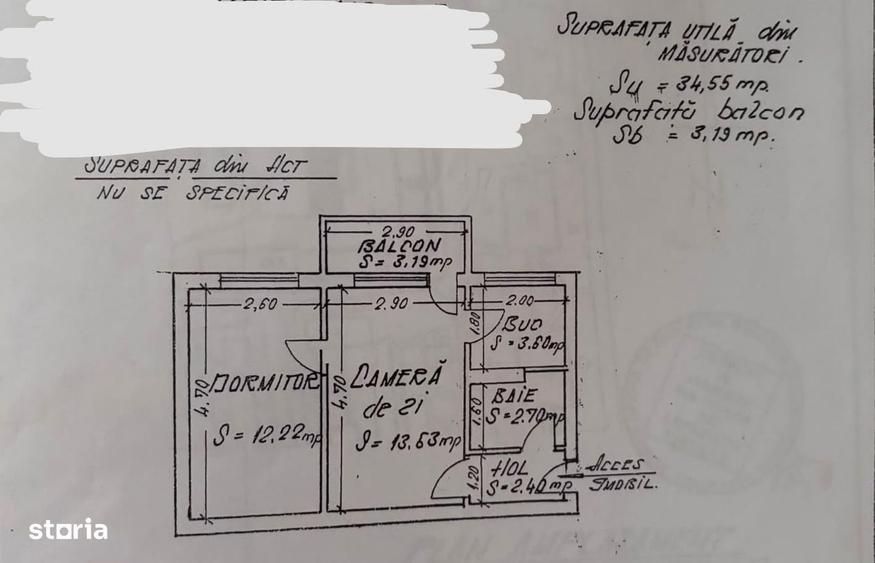 SUPRAFAȚA UTILĂ din
MĂSURĂTORI.
Su = 34,55 mp.
Suprafată balcon
Sb = 3,19 mp.
SUPRAFAȚA din ACT
NU SE SPECIFICĂ
2.90
BALCON
S = 3,19 mp
2,60
2.90
2.00
1.80
BUC
S = 3.60 mp
4,70
DORMITOR
S = 12,22 mp
4,70
CAMERĂ
de zi
S = 13,63 mp
1.60
BAIE
S = 2.70 mp
1.20
HOL
S = 2,40 mp
ACCES
IMOBIL.
storia